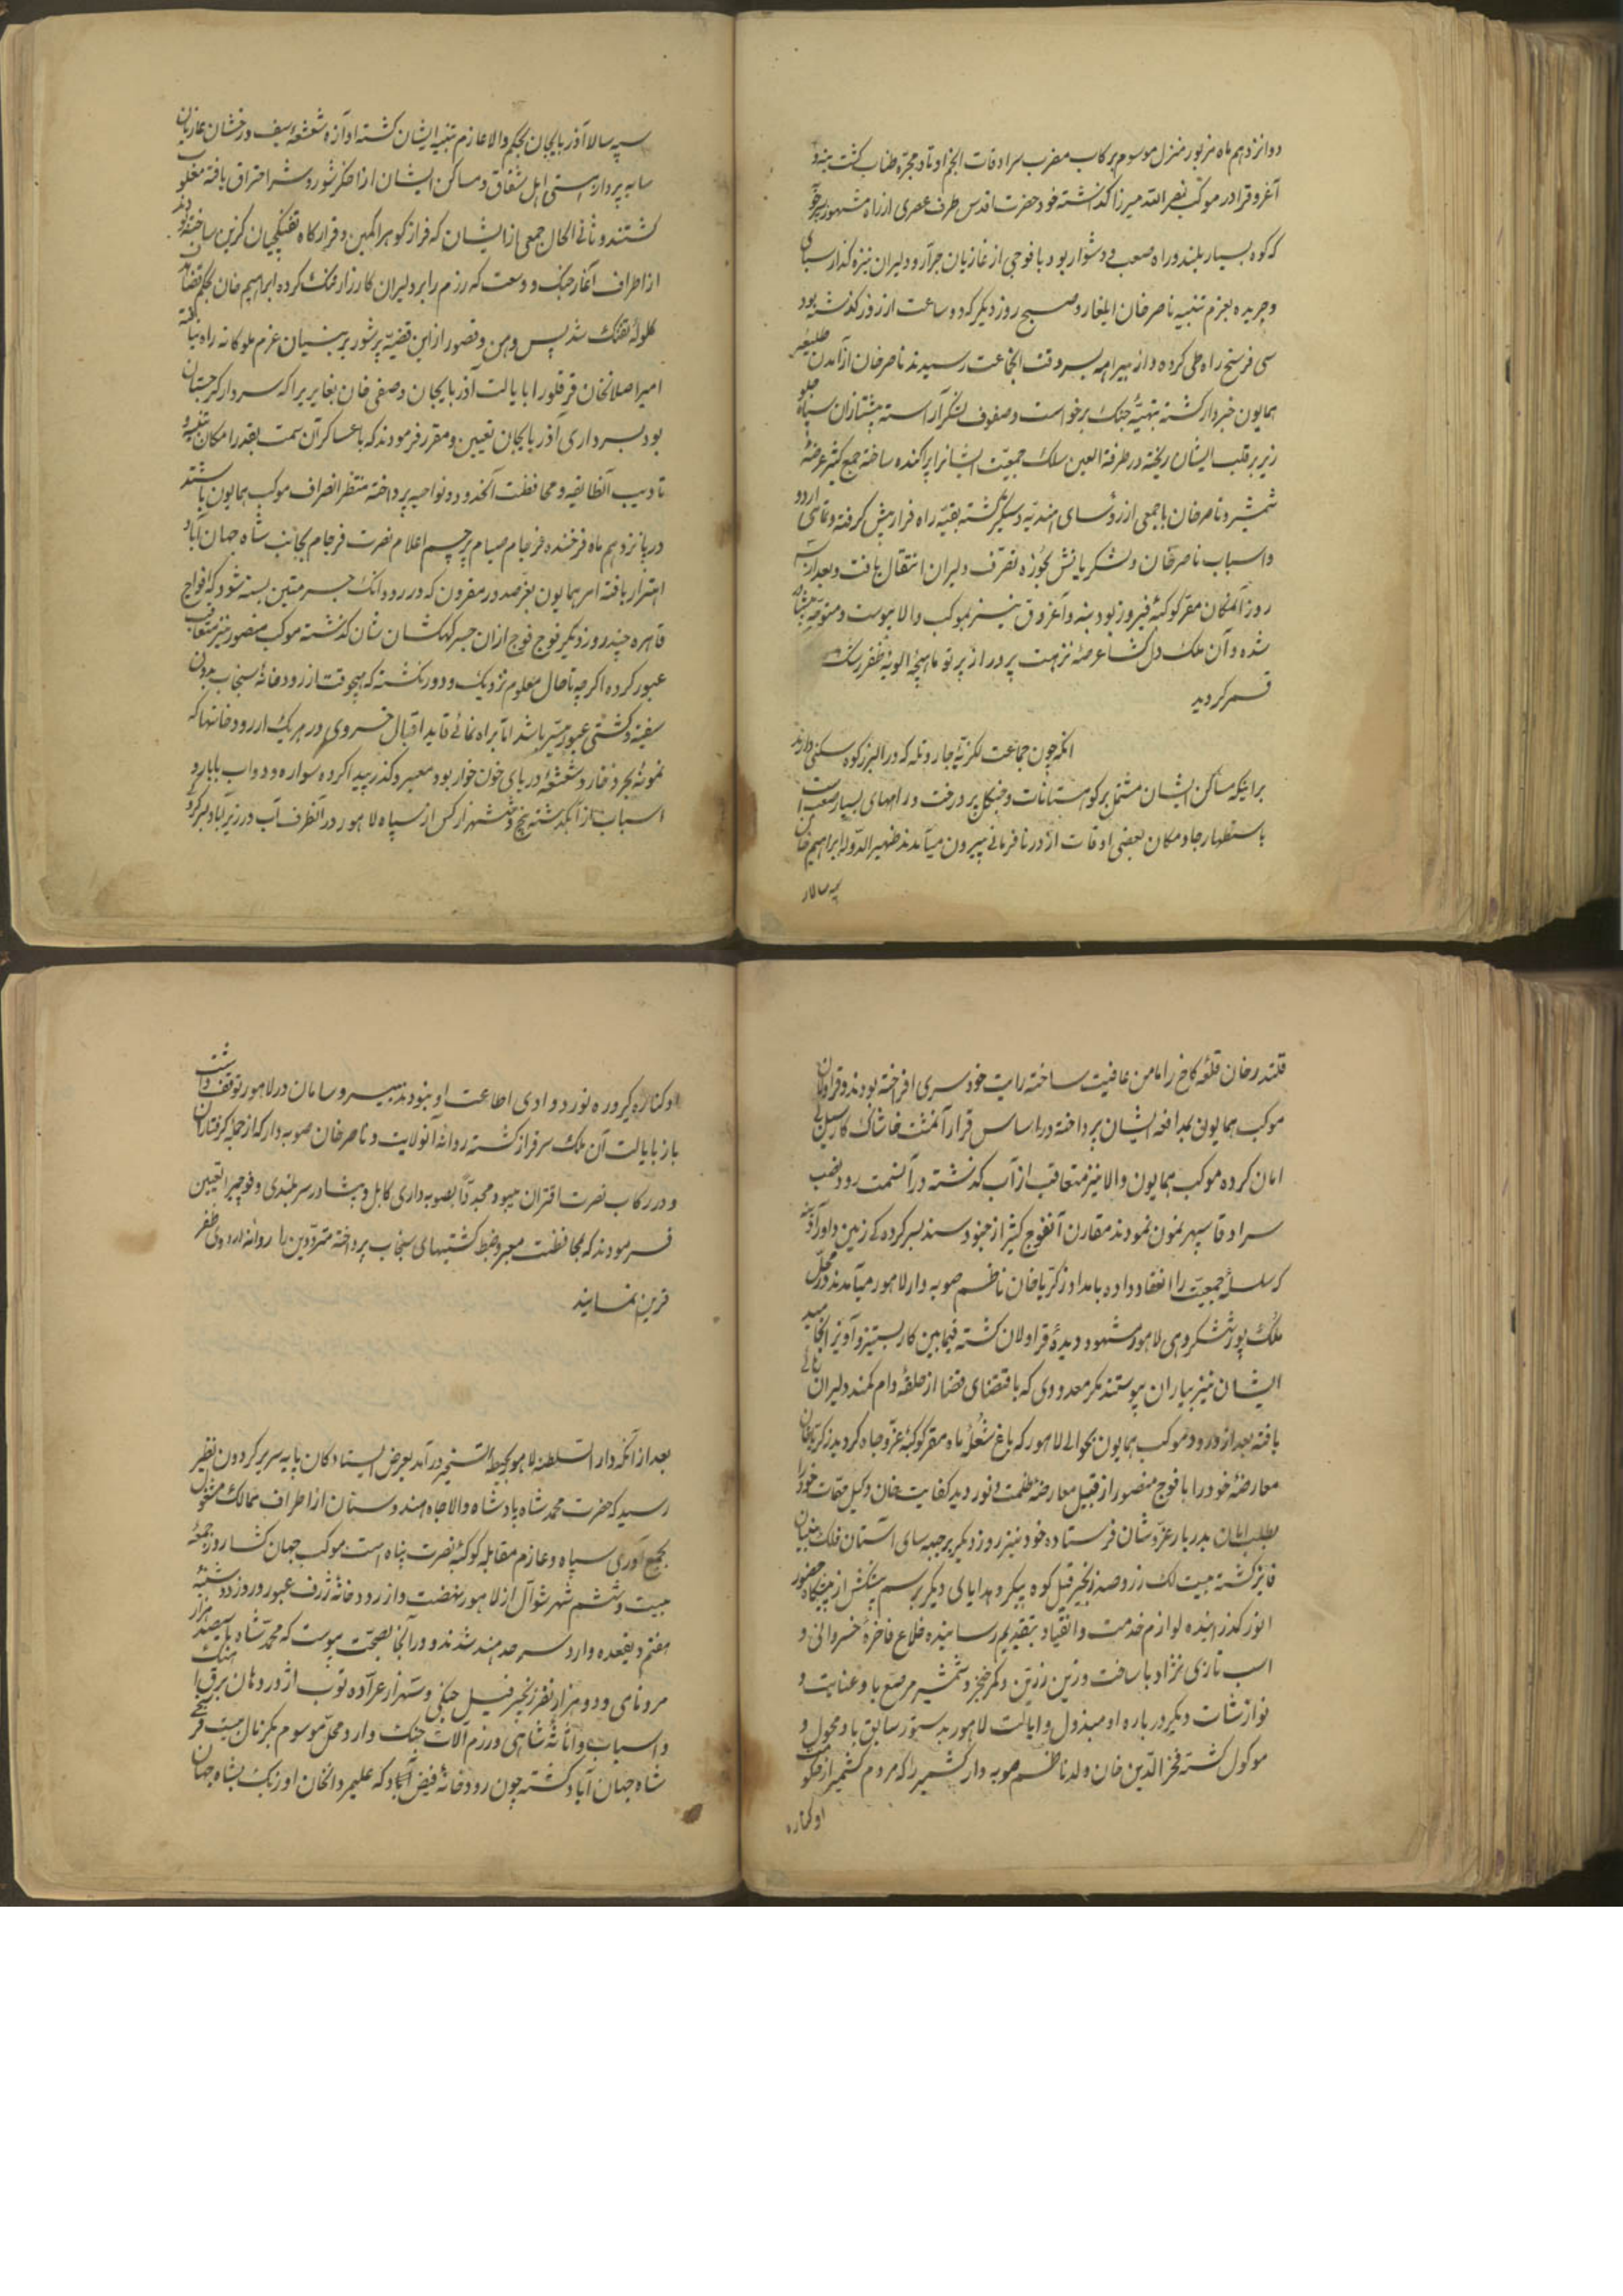 دوازدهم ماه مزبور منزل موسوم برکاب مضرب سرادقات انجم اوتاد و مجره طناب گشت بنه و
آغروق را در موکب نصرالله میرزا گذاشته خود حضرت اقدس طرف عصری از راه مشهور
که کوه بسیار بلند و راه صعب و دشوار بود با فوجی از غازیان جرار و دلیران نیزه گذار
و جریده بعزم تنبیه ناصرخان ایلغار و صبح روز دیگر که دو ساعت از روز گذشته بود
سی فرسخ راه طی کرده و از بیراهه بسر وقت انجماعت رسیدند ناصرخان از آمدن طلیعه
همایون خبردار گشته بتهیه جنگ برخواست و صفوف لشکر آراسته پیشتازان سپاه
بر قلب ایشان ریخته در طرفة العین سلک جمعیت ایشانرا پراکنده ساخته جمع کثیر عرضه
شمشیر و ناصرخان با جمعی از رؤسای هندیه دستگیر گشته بقیه راه فرار پیش گرفته و تمامی اردو
و اسباب ناصرخان و لشکریانش بحوزه تصرف دلیران انتقال یافت و بعد از سه
روز آنمکان مقر کوکبه فیروز بود بنه و آغروق نیز بموکب والا پیوست و متوجه پیشاور
شده و آن ملک دل گشا عرصه نزهت پرور از پرتو ماهچه الویه ظفر رشک
قمر گردید
انکه چون جماعت لکزیه جار و تله که در البرز کوه سکنی دارند
برا اینکه مساکن ایشان مشتمل بر کوهستانات و جنگل پر درخت و راههای بسیار صعب است
باستظهار جا و مکان بعضی اوقات از در نافرمانی بیرون میآمدند ظهیرالدوله ابراهیم خان
سپه سالار
سپه سالار آذربایجان بحکم والا عازم تنبیه ایشان گشته آوازه شعشعه سیف درخشان غازیان
سایه پرداز هستی اهل شقاق و مساکن ایشان از اخگر شور و شر احتراق یافته مغلوب
گشتند و ثانی الحال جمعی از ایشان که فراز کوه را کمین و قرارگاه تفنگچیان گزین ساخته بودند
از اطراف آغاز جنگ و وسعت که رزم را بر دلیران کارزار تنگ کرده ابراهیم خان بحکم قضا
گلوله تفنگ شد پس وهن و قصور از این قضیه پر شور بر بنیان عزم ملوکانه راه نیافته
امیر اصلانخان قرقلو را بایالت آذربایجان و صفی خان بغایری را که سردار گرجستان
بود بسرداری آذربایجان تعیین و مقرر فرمودند که با عساکر آن سمت بقدر امکان بتنبیه و
تادیب آنطایفه و محافظت آنحدود و نواحی پرداخته منتظر انصراف موکب همایون باشند
در پانزدهم ماه فرخنده فرجام صیام پرچم اعلام نصرت فرجام بجانب شاه جهان آباد
اهتزاز یافته امر همایون بعز صدور مقرون که در رود اتک جسر متین بسته شود که افواج
قاهره چند روز دیگر فوج فوج از ان جسر کهکشان نشان گذشته موکب منصور نیز متعاقب
عبور کرده اگرچه تا حال معلوم نزدیک و دور نگشته که هیچوقت از رودخانه سنجاب بدون
سفینه و کشتی عبور میسر باشد اما براه نمائی قاید اقبال خسروی در هر یک از رودخانها که
نمونه بحر ذخار و شعشعه دریای خون خوار بود معبر و گذر پیدا کرده سواره و دواب با بار و
اسباب از آب گذشته پنج و شش هزار کس از سپاه لاهور در آنطرف آب در زیر آباد
قلندرخان قلعه کاخ را مامن عافیت ساخته رایت خودسری افراخته بودند و قراولان
موکب همایونی بمدافعه ایشان پرداخته در اساس قرار آنمشت خاشاک کار سیل بی
امان کرده موکب همایون والا نیز متعاقب از آب گذشته در آنسمت رود نصب
سرادقات سپهر نمون نمودند مقارن آنفوج کثیر از جنود سند
که سلسله جمعیت را انعقاد داده بامداد زکریاخان ناظم صوبه دار لاهور میآمدند در محل
ملک پور شش کروهی لاهور مشهود دیده قراولان گشته فیمابین کار بستیز و آویز انجامید
ایشان نیز بیاران پیوستند مگر معدودی که باقتضای قضا از حلقه دام کمند دلیران رهائی
یافته بعد از ورود موکب همایون بحوالی لاهور که باغ شعله ماه مقر کوکبه عز و جاه گردید زکریاخان
معارضه خود را با فوج منصور از قبیل معارضه ظلمت و نور دید کفایت خان وکیل مهمات خود را
بطلب امان بدربار عز و شان فرستاده خود نیز روز دیگر بر جبهه سای آستان فلک بنیان
فایز گشته بیست لک زر و صد زنجیر فیل کوه پیکر و هدایای دیگر برسم پیشکش از پیشگاه حضور
انور گذرانیده لوازم خدمت و انقیاد بتقدیم رسانیده خلاع فاخره خسروانی و
اسب تازی نژاد با ساخت و زین زرین و کمر خنجر و شمشیر مرصع باو عنایت و
نوازشات دیگر درباره او مبذول و ایالت لاهور بدستور سابق باو محول و
موکول گشته فخرالدین خان ولد ناظم صوبه دار کشمیر را که مردم کشمیر از حکومت
او کناره
او کناره گیر و ره نورد وادی اطاعت او نبودند بی سر و سامان در لاهور توقف داشت
باز بایالت آن ملک سرافراز گشته روانه آنولایت و ناصرخان صوبه دار که از جمله گرفتاران
و در رکاب نصرت اقتران میبود مجددا بصوبه داری کابل و پیشاور سربلندی و فوجی را تعیین
فرمودند که بمحافظت معبر و ضبط کشتیهای سنجاب پرداخته مترددین را روانه اردوی ظفر
قرین نمایند
بعد از آنکه دار السلطنه لاهور بحیطه تسخیر درآمد بعرض ایستادگان پایه سریر گردون نظیر
رسید که حضرت محمد شاه پادشاه والاجاه هندوستان از اطراف ممالک مشغول
بجمع آوری سپاه و عازم مقابله کوکبه نصرت پناه است موکب جهان گشا روز جمعه
بیست و ششم شهر شوال از لاهور نهضت و از رودخانه ژرف عبور و روز دوشنبه
هفتم ذیقعده وارد سرحد هند شدند و در آنجا بصحت پیوست که محمدشاه با سیصد هزار
مرد نامی و دو هزار نفر زنجیر فیل جنگی و سه هزار عراده توپ اژدر دهان برق آهنگ
و اسباب و اثاثه شاهی و رزم آلات جنگ وارد محل موسوم بکرنال بیست فرسخی
شاه جهان آباد گشته چون رودخانه فیض آباد که علیمردانخان او زنگ بشاه جهان